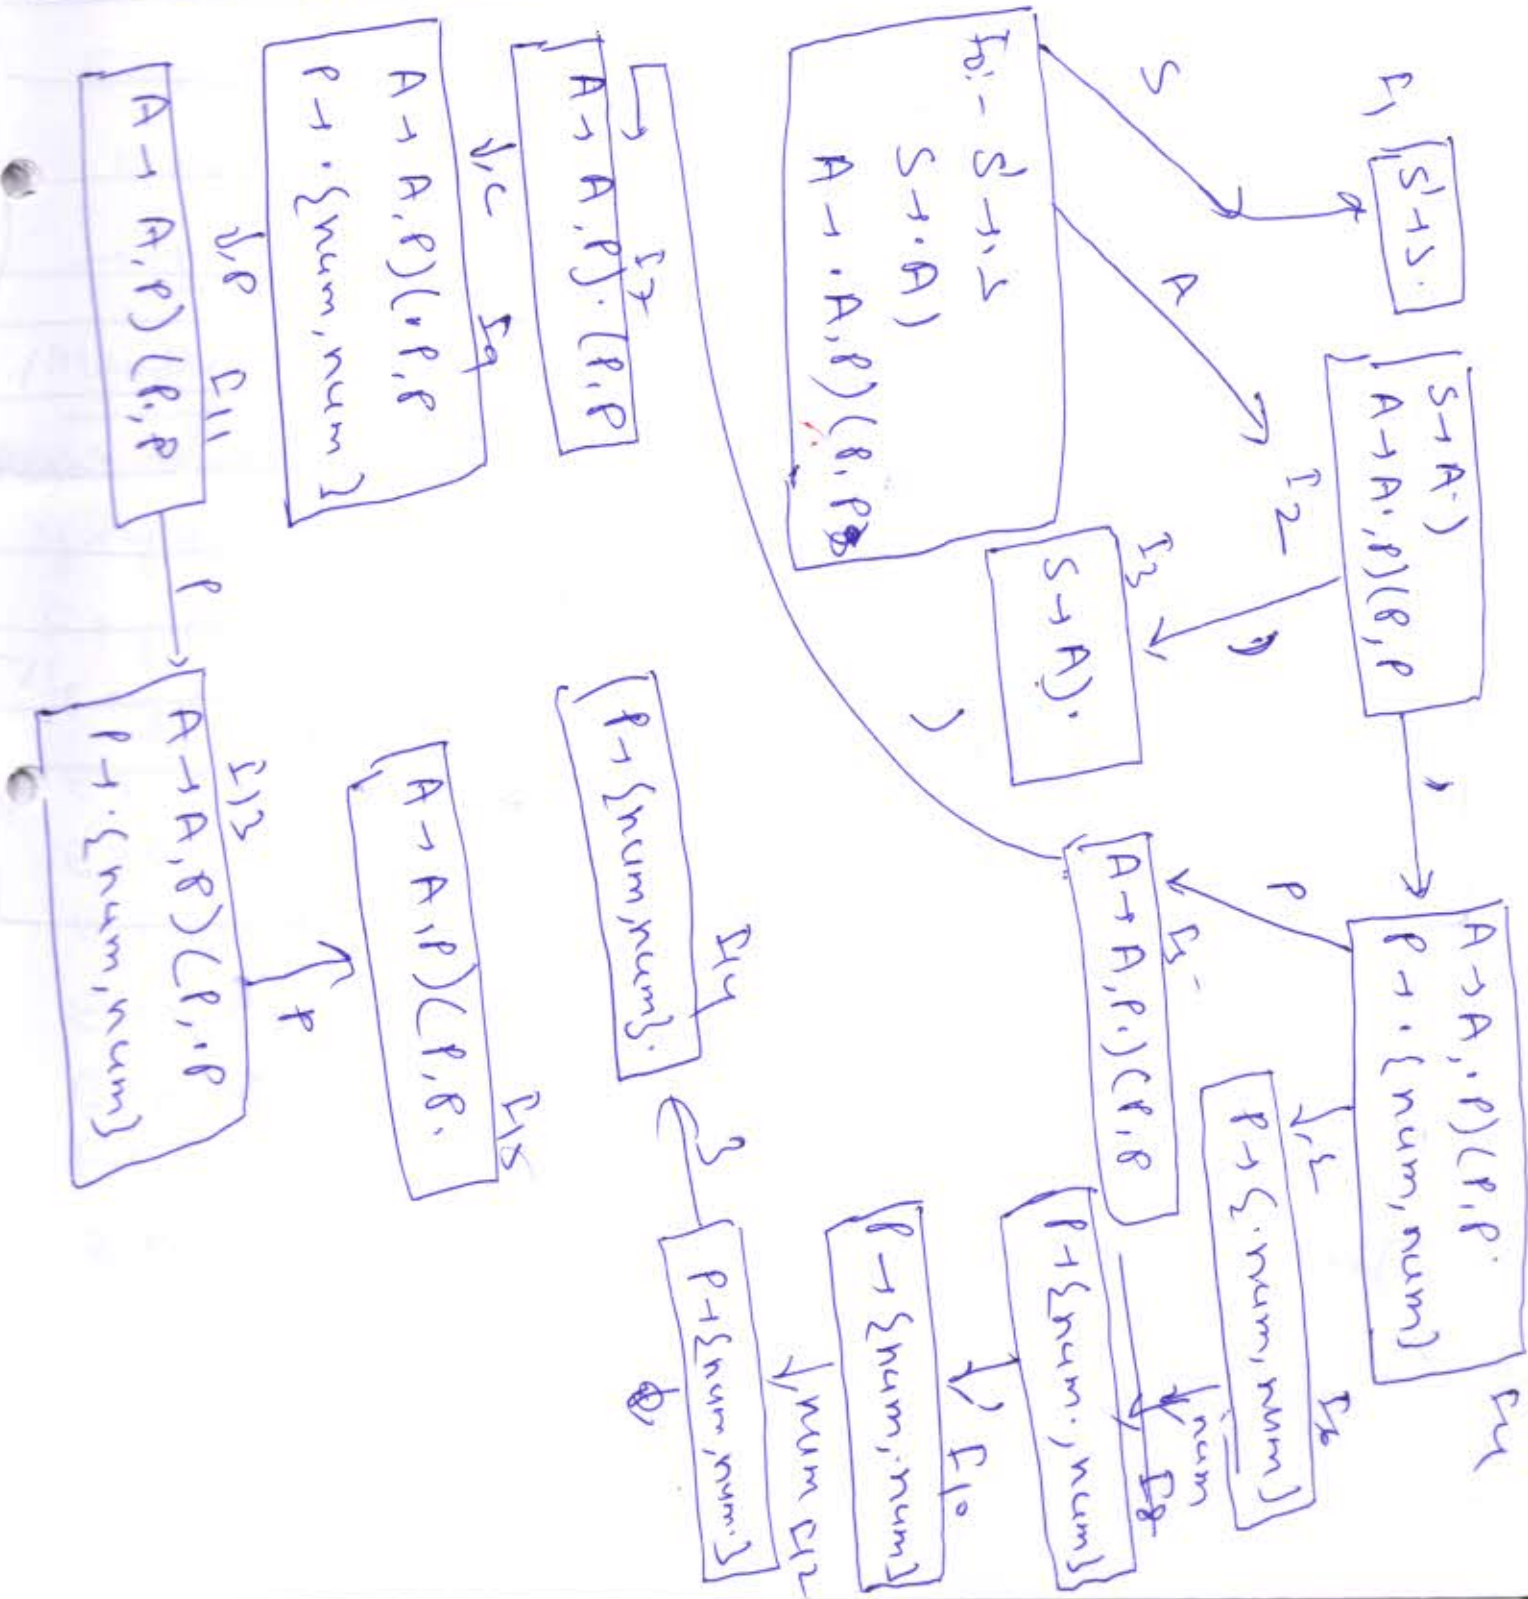 I0:- S' → .S
S → .A)
A → .A,P)(P,P
S
I1
S' → S.
A
I2
S → A.)
A → A.,P)(P,P
)
I3
S → A).
,
I4
A → A,.P)(P,P
P → .{num,num}
P
I5
A → A,P.)(P,P
{
I6
P → {.num,num}
num
I8
P → {num.,num}
,
I10
P → {num,.num}
num
I12
P → {num,num.}
}
I14
P → {num,num}.
)
I7
A → A,P).(P,P
(
I9
A → A,P)(.P,P
P → .{num,num}
P
I11
A → A,P)(P.,P
,
I13
A → A,P)(P,.P
P → .{num,num}
P
I15
A → A,P)(P,P.